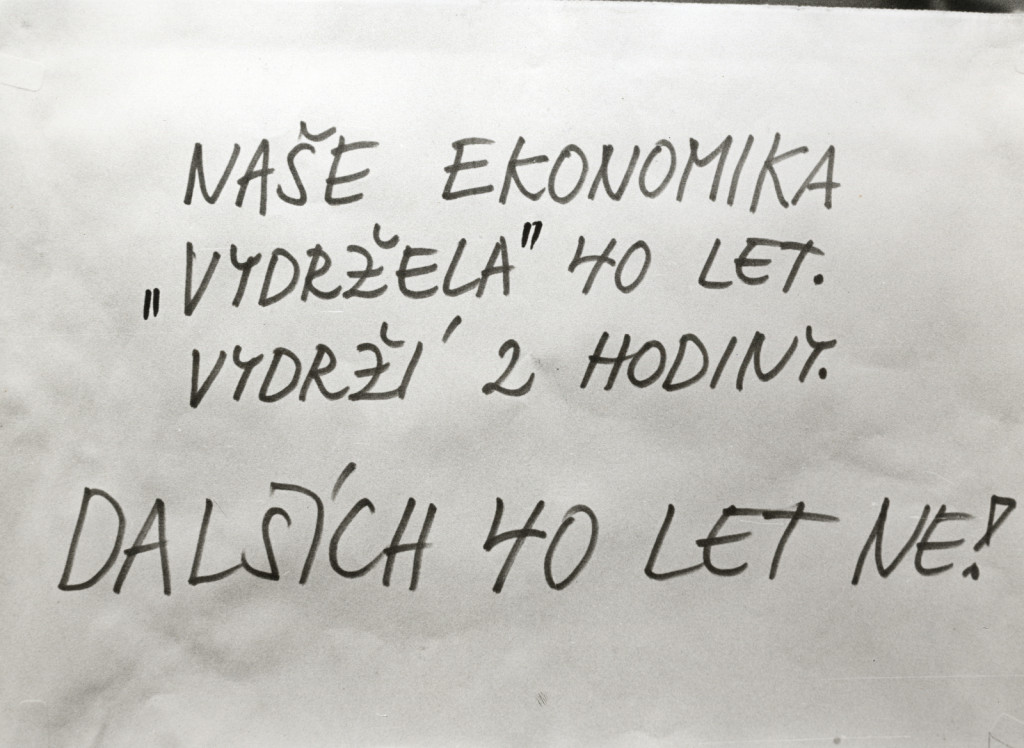 NAŠE EKONOMIKA
„VYDRŽELA" 40 LET.
VYDRŽÍ 2 HODINY.
DALŠÍCH 40 LET NE!